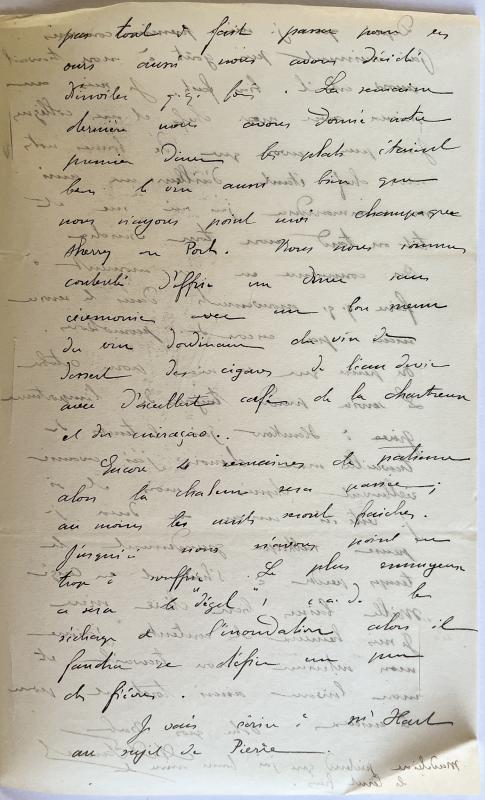 pas tout à fait passer pour es
ours aussi nous avons décidé
d'inviter q.q. fois. La semaine
dernière nous avons donné notre
premier diner les plats étaient
bons le vin aussi bien que
nous n'ayons point mis champagne
sherry ou Porto. Nous nous sommes
contenté d'offrir un diner sans
cérémonie avec un bon menu
du vin d'ordinaire du vin de
dessert des cigares de l'eau de vie
avec d'excellent café de la chartreuse
et du curaçao..
Encore 4 semaines de patience
alors la chaleur sera passée;
au moins les nuits seront fraiches.
Jusqu'ici nous n'avons point eu
trop à souffrir. Le plus ennuyeux
ce sera le "dégel", c.à.d. le
séchage de l'inondation alors il
faudra se défier un peu
des fièvres.
Je vais écrire à Mr Hart
au sujet de Pierre.
Madeleine